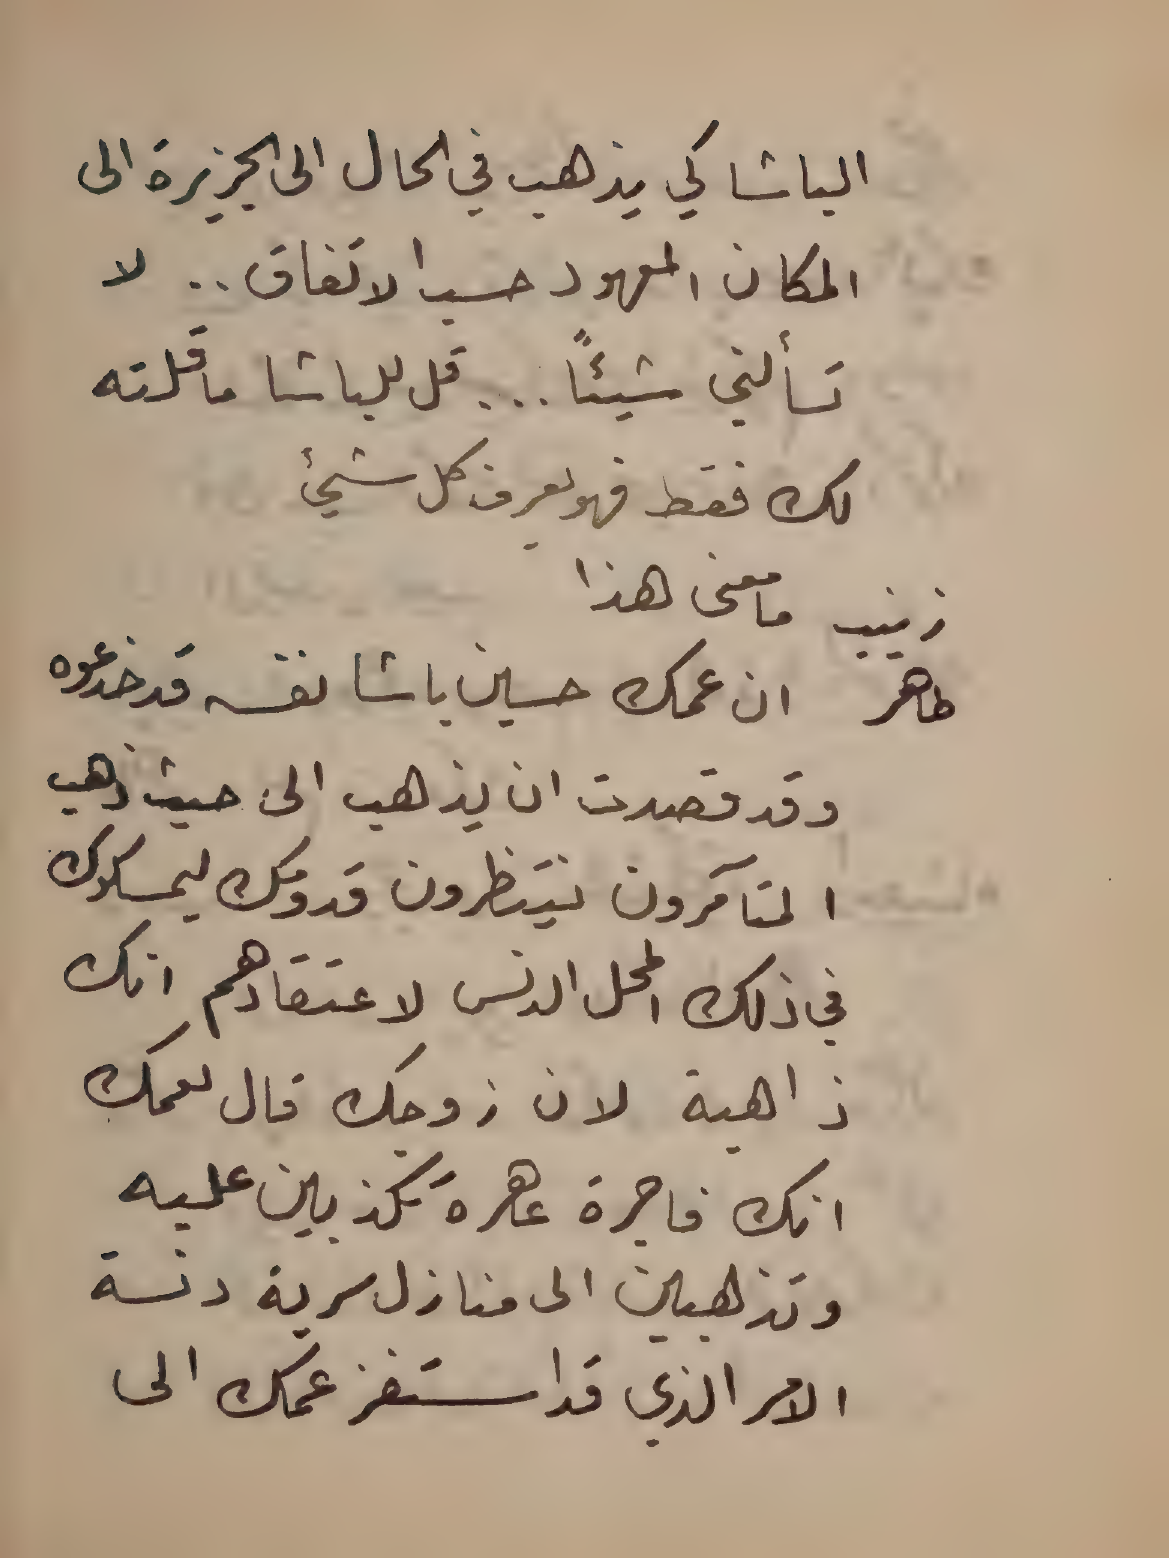 الباشا كي يذهب في الحال الى الجزيرة الى
المكان المعهود حسب الاتفاق .. لا
تسألني شيئًا ... قل للباشا ما قلته
لك فقط فهو يعرف كل شيئ
زينب ما معنى هذا
طاهر ان عمك حسين باشا نفسه قد خدعوه
وقد قصدت ان يذهب الى حيث ذهب
المتآمرون ينتظرون قدومك ليمسكوك
في ذلك المحل الدنس لاعتقادهم انك
ذاهبة لان زوجك قال لعمك
انك فاجرة عاهرة تكذبين عليه
وتذهبين الى منازل سرية دنسة
الامر الذي قد استفز عمك الى